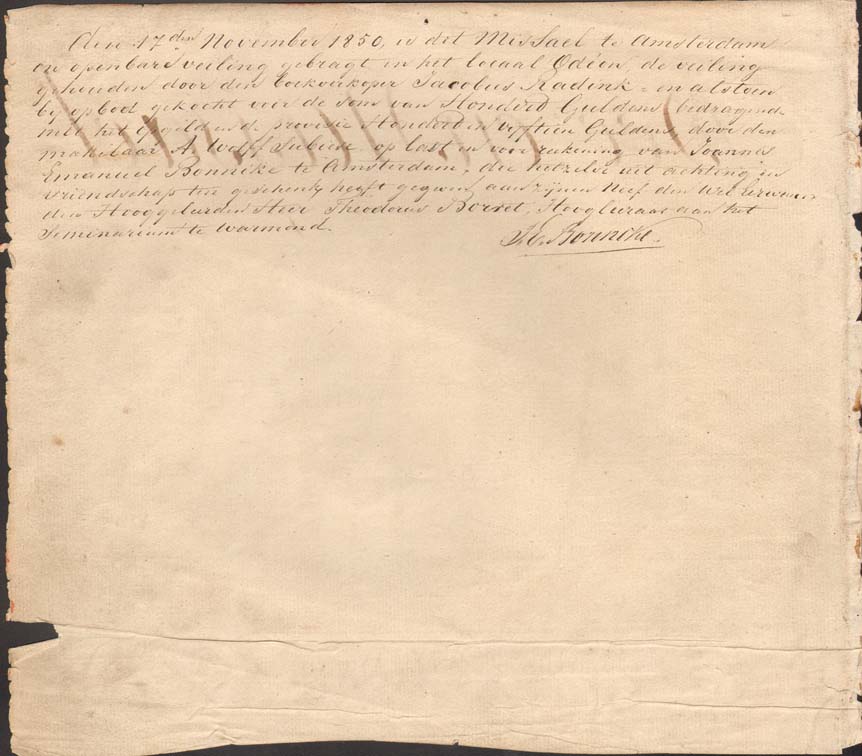 Den 17den November 1850, is dit Missael te Amsterdam
in openbare veiling gebragt in het locaal Odéon, de veiling
gehouden door den boekverkoper Jacobus Radink en alstoen
bij opbod gekocht voor de som van Honderd Guldens, bedragende
met het opgeld en de provisie Honderd en vijftien Guldens, door den
makelaar A. Wolff op last en voor rekening van Joannes
Emanuel Bonneke te Amsterdam, die hetzelve uit achting en
vriendschap ten geschenk heeft gegeven aan zijnen Neef den Wel Eerwaar
den Hooggeleerden Heer Theodorus Borret, Hoogleeraar aan het
Seminarium te Warmond.
J. E. Bonneke.